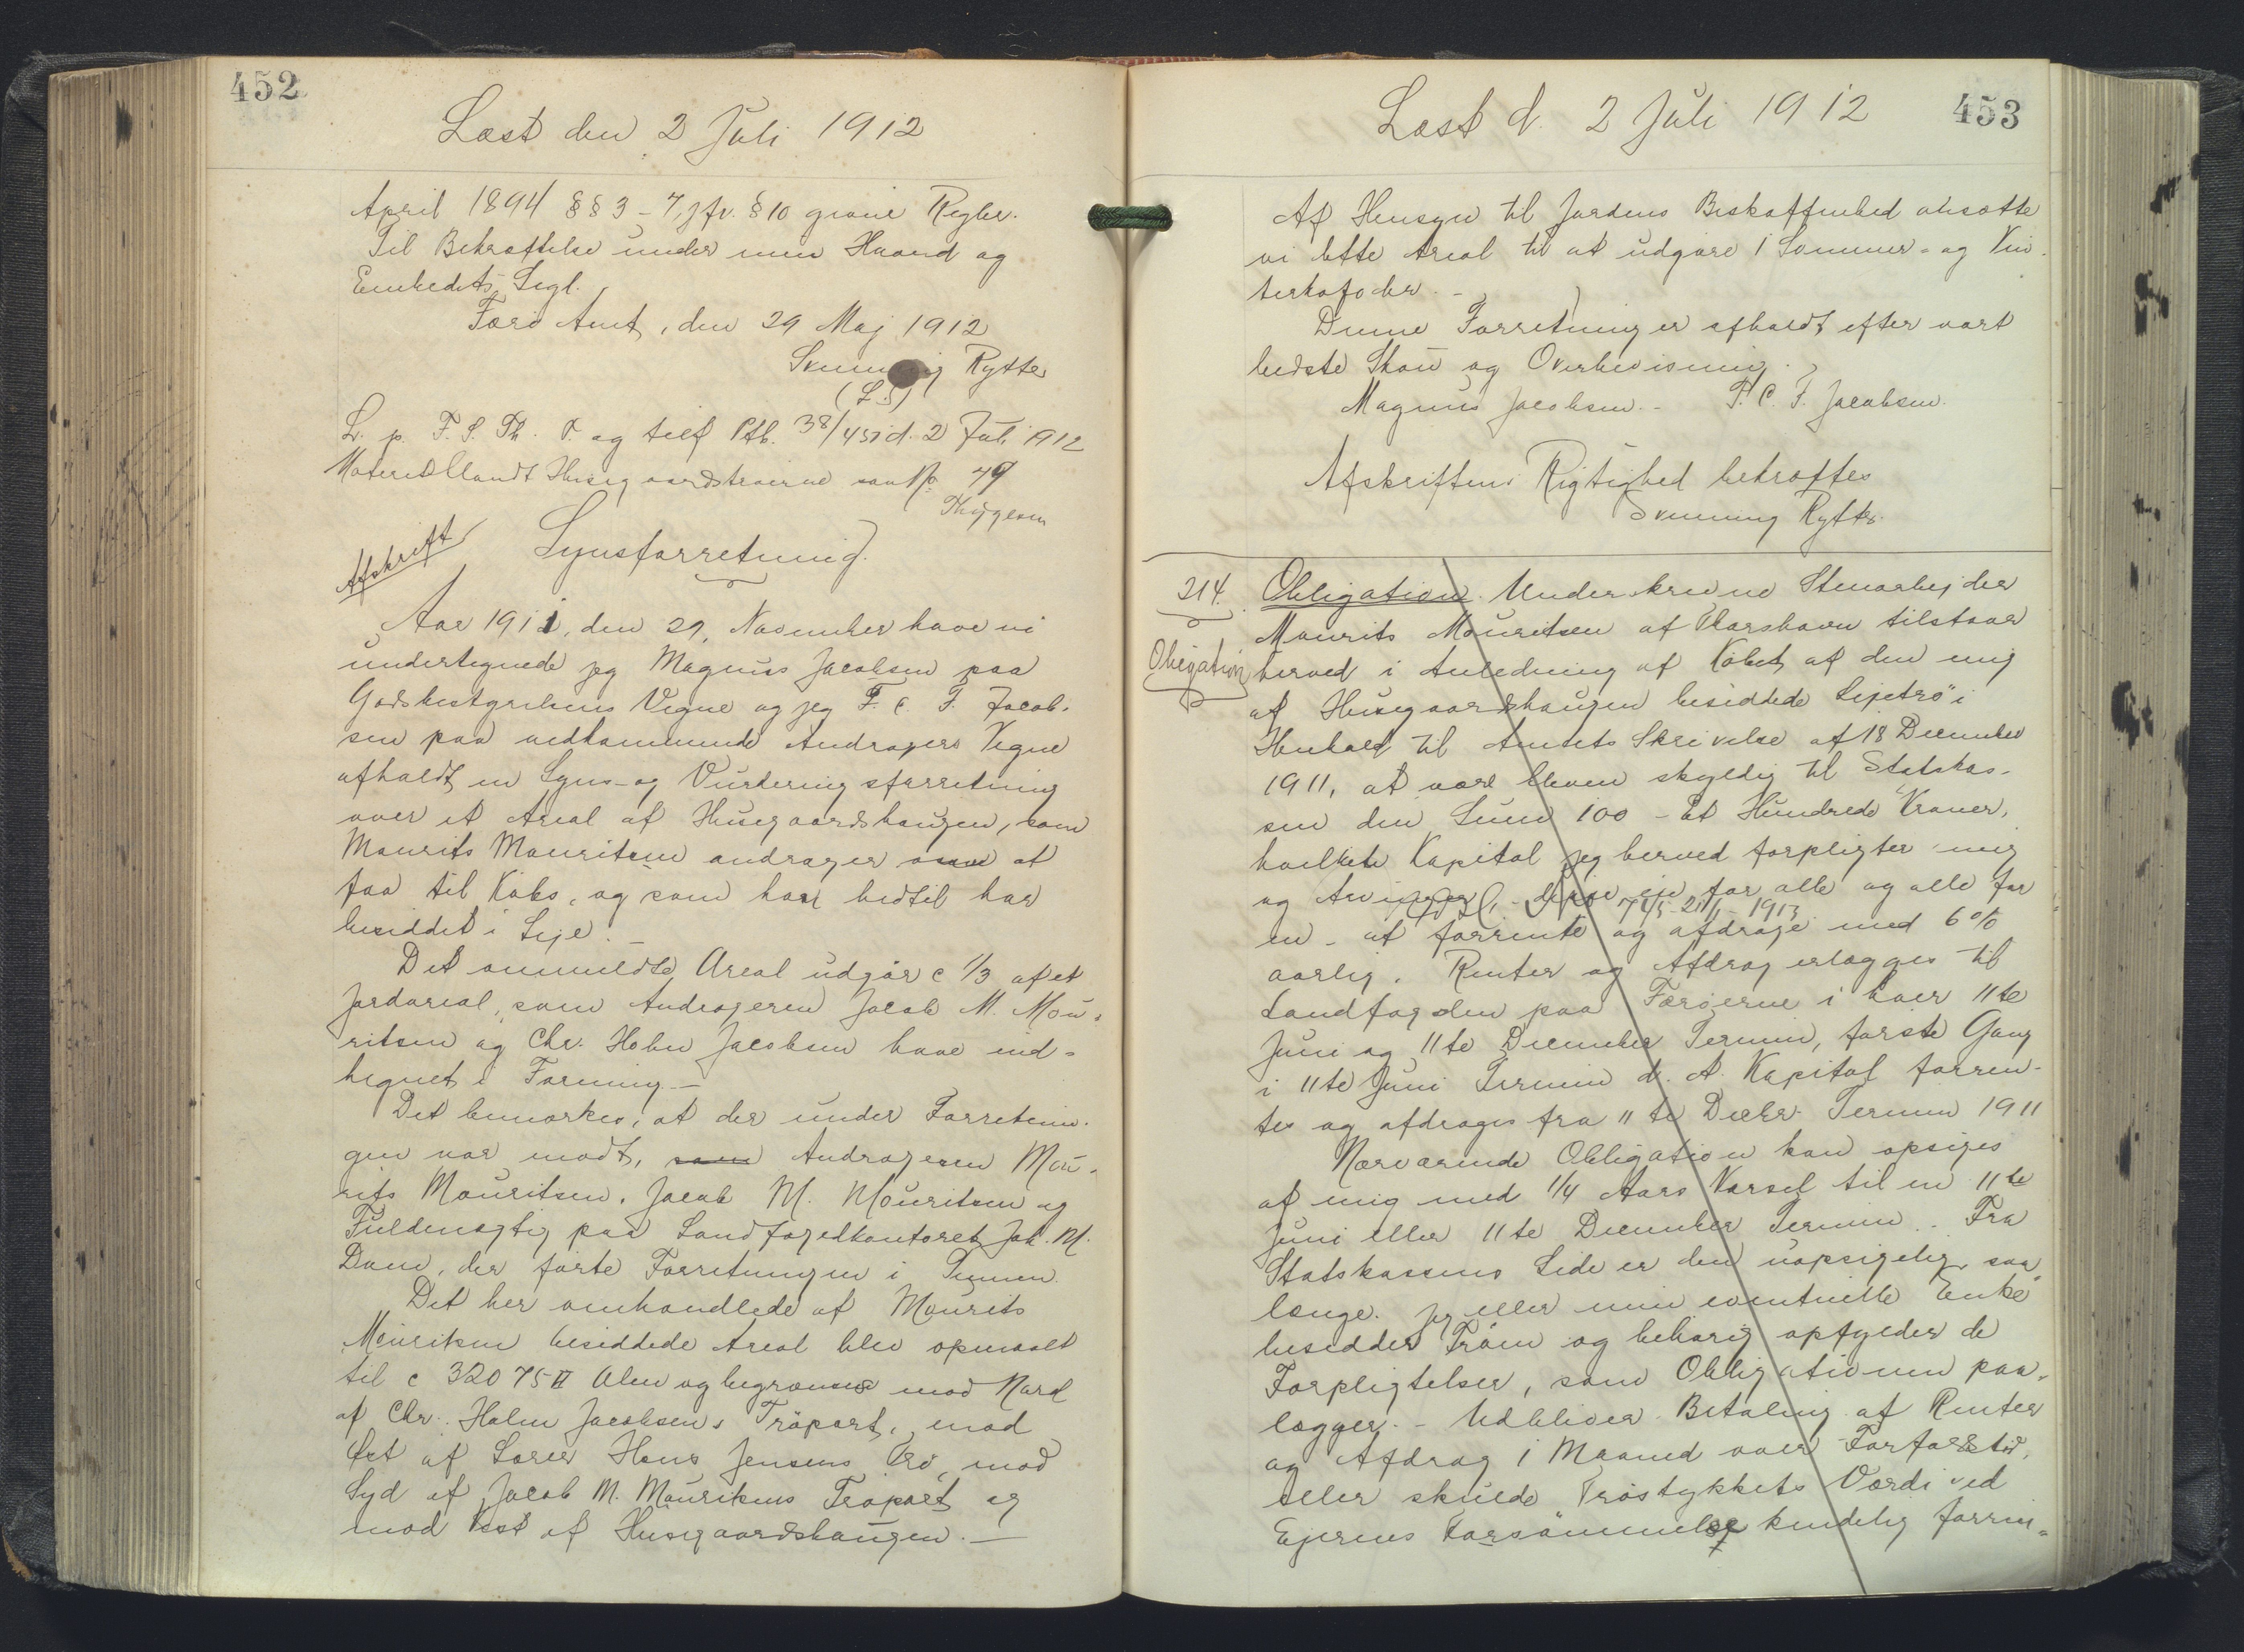 452
Læst den 2 Juli 1912
April 1894 §§ 3-7, jfr. § 10 givne Regler.
Til Bekræftelse under min Haand og
Embedets Segl.
Færø Amt, den 29 Maj 1912
Svenning Rytter
(L.S)
L. p. F. S. Th. T. og tilf Ptb. 38/451 d. 2 Juli 1912
Husegaardstrøerne som No 49
Thygesen
Afskrift
Synsforretning.
Aar 1911, den 29, November have vi
undertegnede jeg Magnus Jacobsen paa
Godsbestyrelsens Vegne og jeg F. C. F. Jacob-
sen paa vedkommende Andragers Vegne
afholdt en Syns- og Vurderingsforretning
over et Areal af Husegaardshaugen, som
Mourits Mouritsen andrager om at
faa til Købs, og som han hidtil har
besiddet i Leje. -
Det anmeldte Areal udgør c 1/3 af et
Jordareal, som Andrageren Jacob M. Mou-
ritsen og Chr. Holm Jacobsen have ind-
hegnet i Forening. -
Det bemærkes, at der under Forretnin-
gen var mødt, som Andrageren Mou-
rits Mouritsen, Jacob M. Mouritsen og
Fuldmægtig paa Landfogedkontoret Joh. M.
Dam, der førte Forretningen i Pennen.
Det her omhandlede af Mourits
Mouritsen besiddede Areal blev opmaalt
til c 32075 □ Alen og begrænses mod Nord
af Chr. Holm Jacobsens Trøpart, mod
Øst af Lærer Hans Jensens Trø, mod
Syd af Jacob M. Mouritsens Trøpart og
mod Vest af Husegaardshaugen. -
Læst d. 2 Juli 1912
453
Af Hensyn til Jordens Beskaffenhed ansætte
vi dette Areal til at udgøre 1 Sommer- og Vin-
terkofoder. -
Denne Forretning er afholdt efter vort
bedste Skøn og Overbevisning.
Magnus Jacobsen. - F. C. F. Jacobsen.
Afskriftens Rigtighed bekræftes
Svenning Rytter.
214.
Obligation
Obligation. Underskrevne Stenarbejder
Mourits Mouritsen af Thorshavn tilstaar
herved i Anledning af Købet af den mig
af Husegaardshaugen besiddede Lejetrø i
Henhold til Amtets Skrivelse af 18 December
1911, at være bleven skyldig til Statskas-
sen den Sum 100 - Et Hundrede Kroner,
hvilken Kapital jeg herved forpligter mig
og Arvinger - een for alle og alle for
7 4/5 - 21/1 - 1913
en - at forrente og afdrage med 6 %
aarlig. Renter og Afdrag erlægges til
Landfogden paa Færøerne i hver 11te
Juni og 11te December Termin, første Gang
i 11te Juni Termin d. A. Kapital forren-
tes og afdrages fra 11te Decbr. Termin 1911
Nærværende Obligation kan opsiges
af mig med 1/4 Aars Varsel til en 11te
Juni eller 11te December Termin. - Fra
Statskassens Side er den uopsigelig, saa-
længe jeg eller min eventuelle Enke
besidder Trøen og behørig opfylder de
Forpligtelser, som Obligationen paa-
lægger. - Udebliver Betaling af Renter
og Afdrag 1 Maaned over Forfaldstid,
eller skulde Trøstykkets Værdi ved
Ejerens Forsømmelse kendelig forrin-